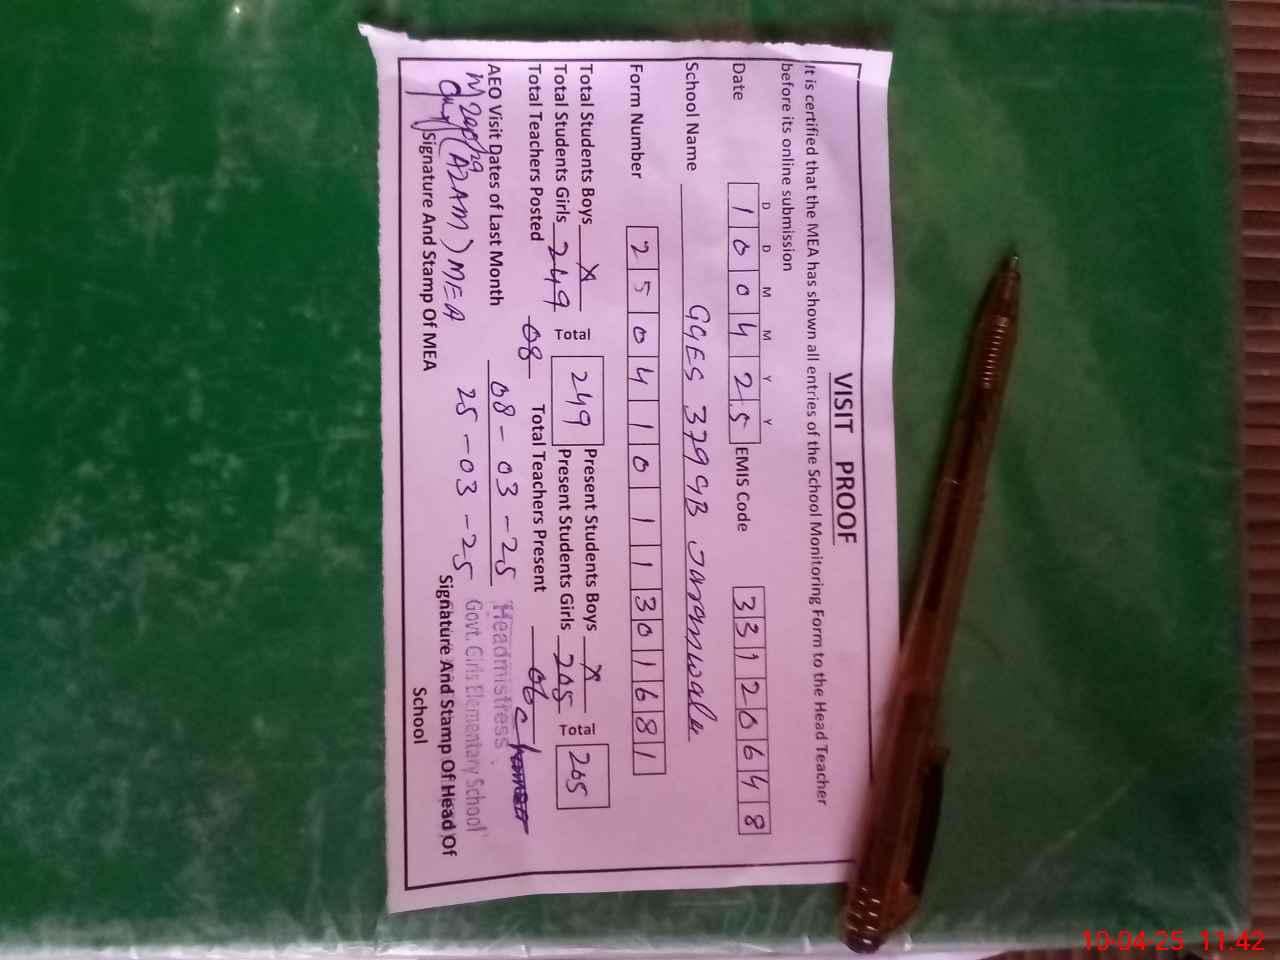 VISIT PROOF
It is certified that the MEA has shown all entries of the School Monitoring Form to the Head Teacher
before its online submission
D D M M Y Y
Date 1 0 0 4 2 5 EMIS Code 3 3 1 2 0 6 4 8
School Name GGES 379 GB
Form Number 2 5 0 4 1 0 1 1 3 0 1 6 8 1
Total Students Boys X Present Students Boys X
Total Students Girls 249 Total 249 Present Students Girls 205 Total 205
Total Teachers Posted 08 Total Teachers Present 06
AEO Visit Dates of Last Month 08-03-25
25-03-25
(AZAM) MEA
Signature And Stamp Of MEA
Headmistress
Govt. Girls Elementary School
Signature And Stamp Of Head Of
School
10-04-25 11:42